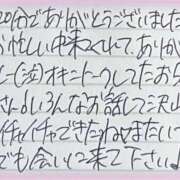 20分でありがとうございました
お忙しい中来てくれて、ありが
(泣)オキニトークしてたお
さん♪いろんなお話して沢山
イチャイチャできたね♥またいつ
でも会いに来て下さい♪